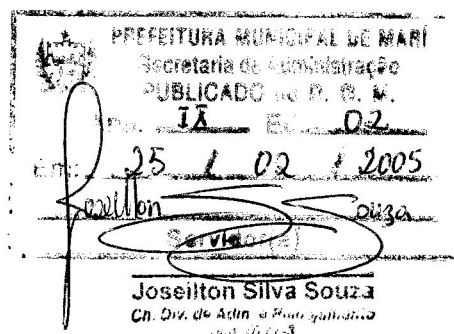 PREFEITURA MUNICIPAL DE MARÍ
Secretaria de Administração
PUBLICADO no D. O. M.
Ano. IX Ed. 02
Em: 25 / 02 / 2005
Joseilton Souza
Servidor(a)
Joseilton Silva Souza
Ch. Div. de Adm. e